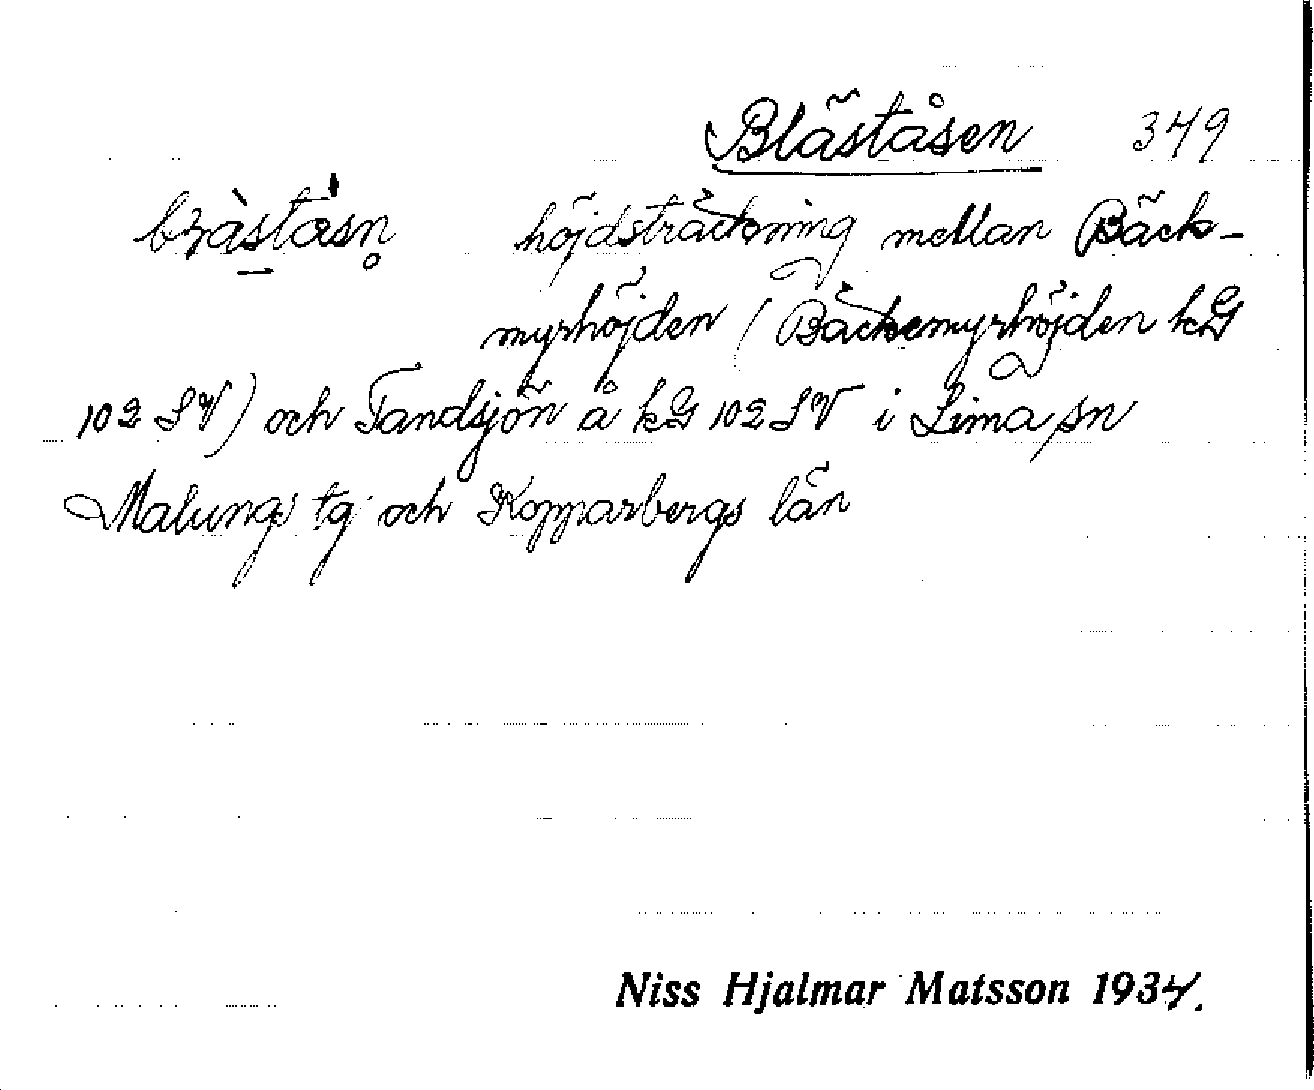 Bläståsen 349
höjdsträckning mellan Bäck-
myrhöjden (Bäckemyrhöjden kG
102 SV) och Tandsjön å kG 102 SV i Lima sn
Malungs tg och Kopparbergs län
Niss Hjalmar Matsson 1934.